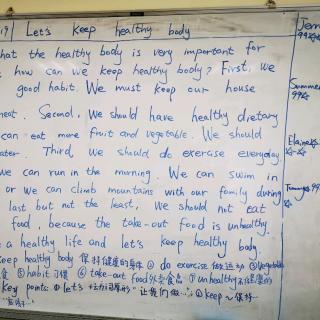 19 | Let's keep healthy body
hat the healthy body is very important for
t how can we keep healthy body? First, we
good habit. We must keep our house
neat. Second, We should have healthy dietary
can eat more fruit and vegetable. We should
ater. Third, we should do exercise everyday
we can run in the morning. We can swim in
or we can climb mountains with our family during
last but not the least, We should not eat
food, because the take-out food is unhealthy.
e a healthy life and let's keep healthy body.
keep healthy body 保持健康的身体 ② do exercise 做运动 ③ vegetable
食 ⑤ habit 习惯 ⑥ take-out food 外卖食品 ⑦ unhealthy 不健康的
Key points: ① let's + 动词原形 "让我们做…" ② keep ~ 保持
Jerry
99☆☆
Summer
99☆
Elaine☆
☆☆